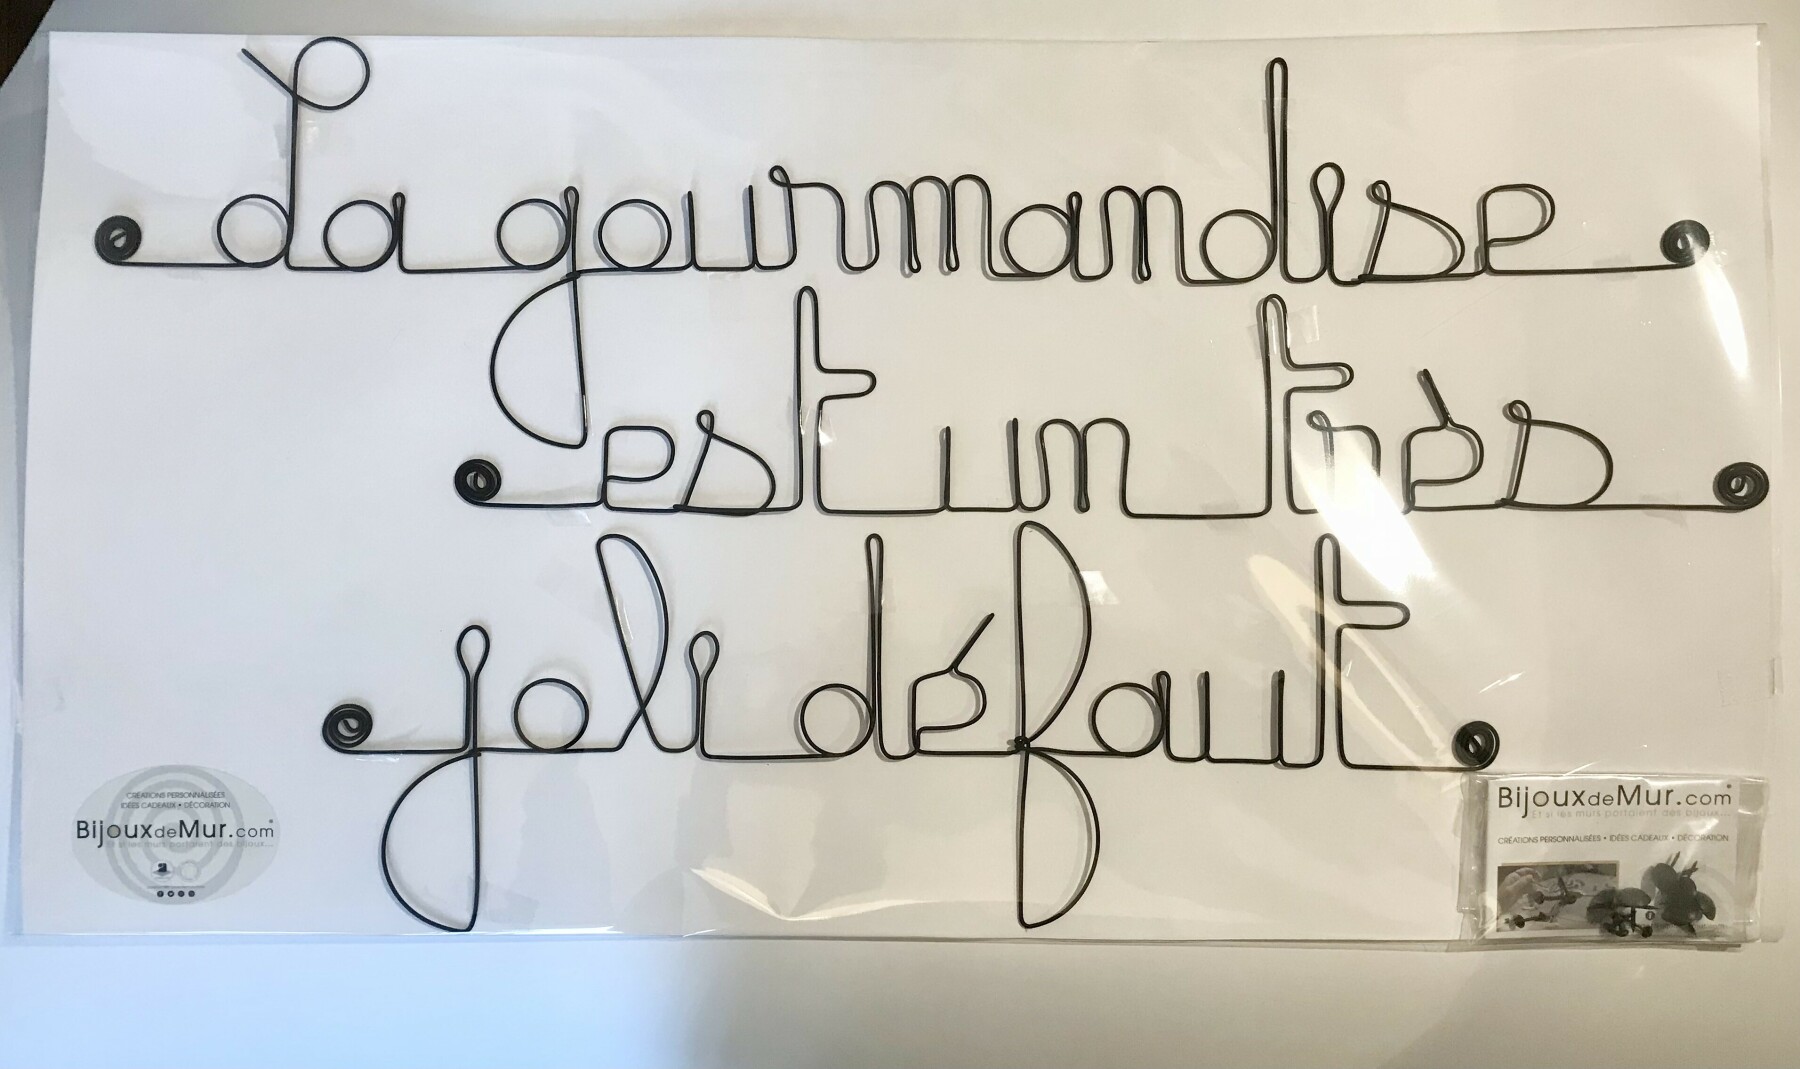 La gourmandise
est un très
joli défaut
CRÉATIONS PERSONNALISÉES
IDÉES CADEAUX • DÉCORATION
BijouxdeMur.com
Et si les murs portaient des bijoux...
BijouxdeMur.com
Et si les murs portaient des bijoux...
CRÉATIONS PERSONNALISÉES • IDÉES CADEAUX • DÉCORATION